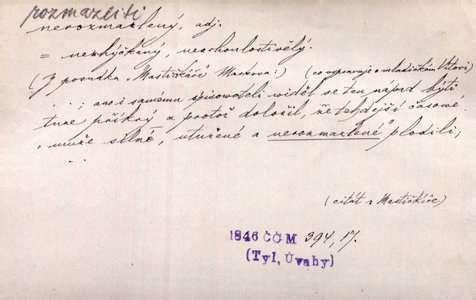 rozmazliti
nerozmazlený, adj.
= nezhýčkaný, nechoulostivělý.
(Z povídka „Mastičkáře" Mackova:) (co vypravuje o mladičkém Vítovi
..; ano i samému spisovateli viděl se ten nápad býti
tuze příkrý a protož doložil, že tehdejší časové
„muže silné, utužené a nerozmazlené" plodili;
(citát z Mastičkáře)
1846 ČČM 394, 17.
(Tyl, Úvahy)